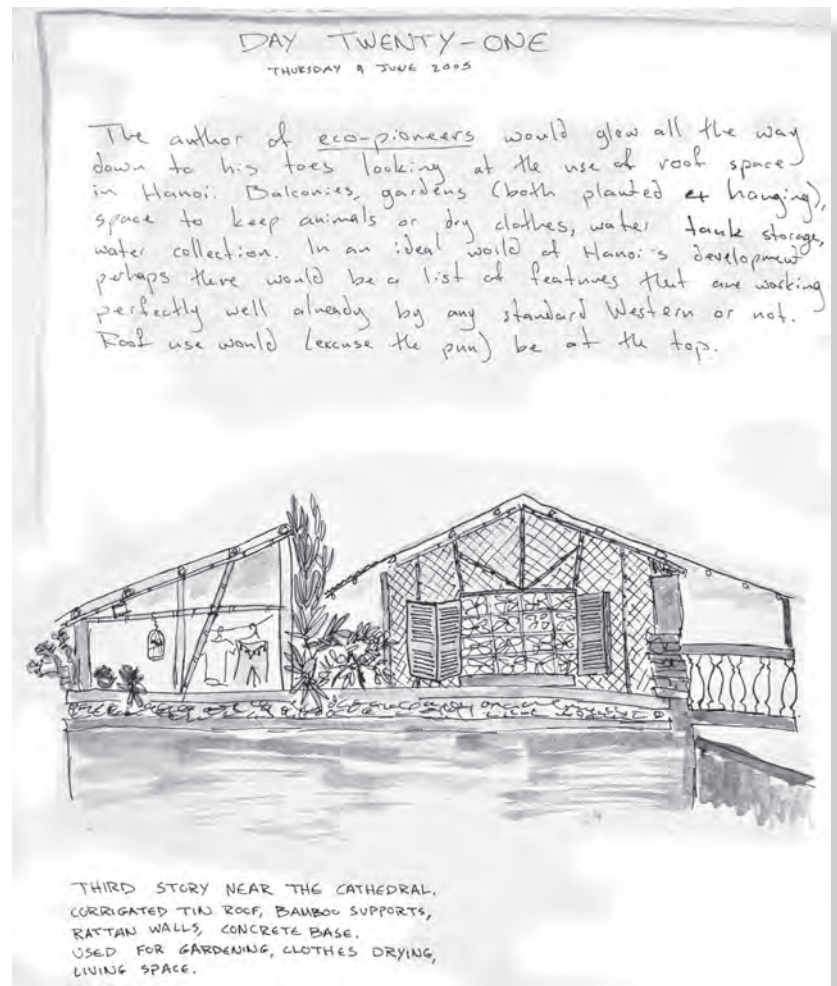 DAY TWENTY-ONE
THURSDAY 9 JUNE 2005
The author of eco-pioneers would glow all the way
down to his toes looking at the use of roof space
in Hanoi. Balconies, gardens (both planted & hanging),
space to keep animals or dry clothes, water tank storage,
water collection. In an ideal world of Hanoi's development
perhaps there would be a list of features that are working
perfectly well already by any standard Western or not.
Roof use would (excuse the pun) be at the top.
THIRD STORY NEAR THE CATHEDRAL.
CORRIGATED TIN ROOF, BAMBOO SUPPORTS,
RATTAN WALLS, CONCRETE BASE.
USED FOR GARDENING, CLOTHES DRYING,
LIVING SPACE.